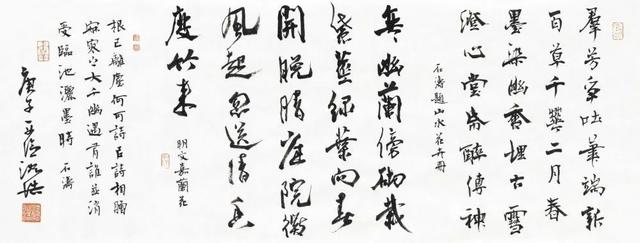 羣芳爭吐筆端新
百草千葩二月春
墨染幽香埋古雪
澄心堂紙醉傳神
石濤題山水花卉冊
奕奕幽蘭傍砌栽
紫莖綠葉向春
開晚晴庭院微
風起忽送清香
度竹來
明文嘉蘭花
根已離塵何可詩以詩相贈
寂寥之大千幽過有誰並消
受臨池灑墨時 石濤
庚子